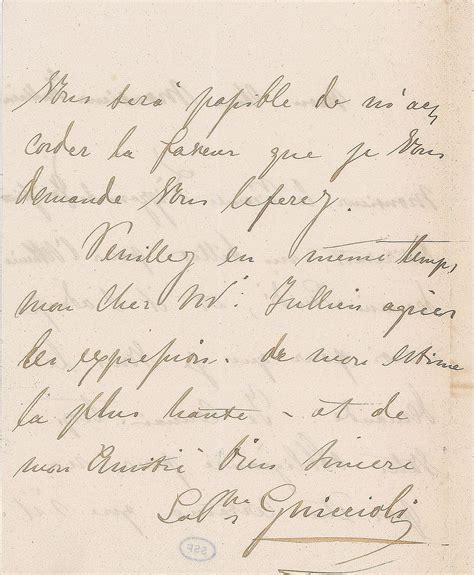 Vous sera possible de m'ac
corder la faveur que je Vous
demande Vous le ferez.
Veuillez en même temps,
mon Cher Mr. Jullien agréer
les expression. de mon estime
la plus haute - et de
mon Amitié bien sincere
La Psse Guiccioli
SSP